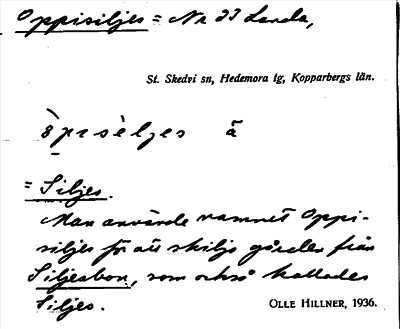 Oppisiljes = Nr 23 Landa,
St. Skedvi sn, Hedemora tg, Kopparbergs län.
= Siljes.
Man använde namnet Oppi-
siljes för att skilja gården från
Siljesbon, som också kallades
Siljes.
OLLE HILLNER, 1936.